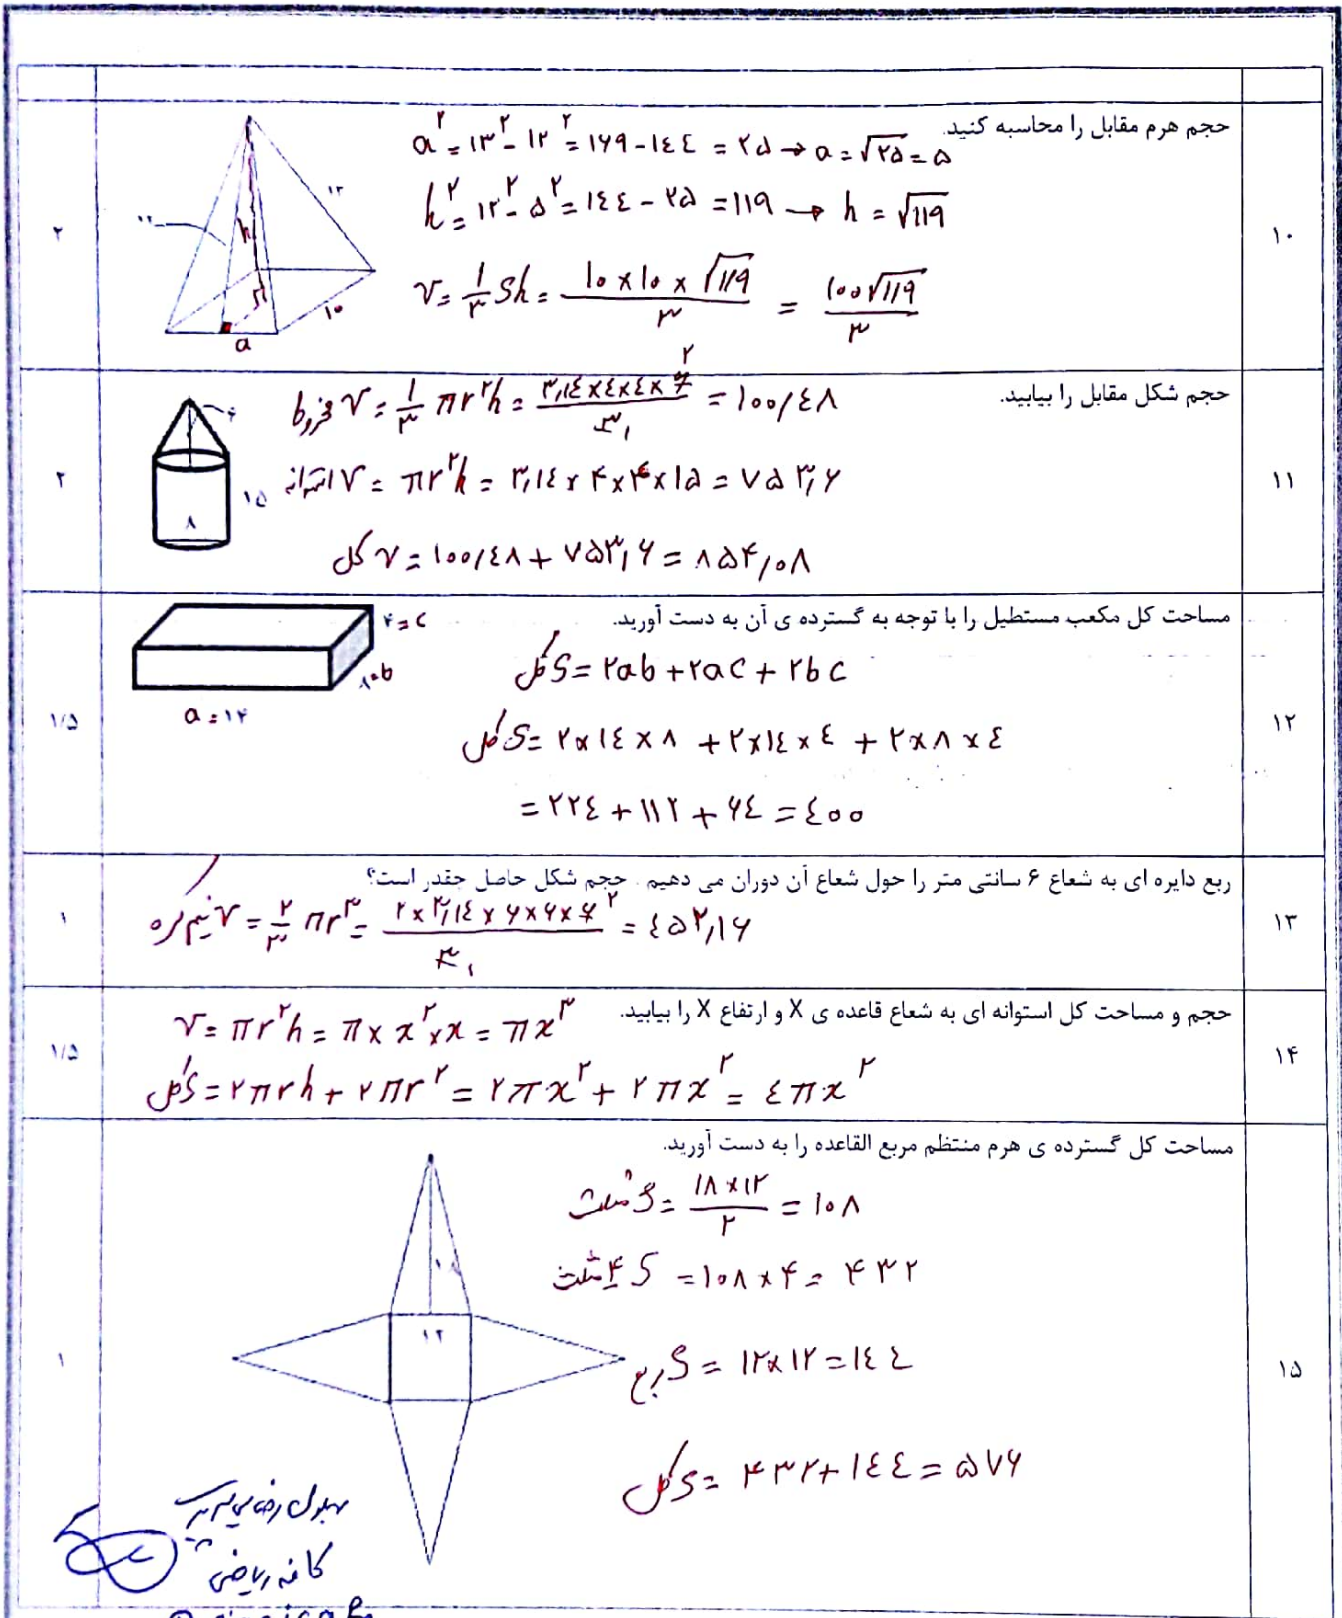 ۱۰
حجم هرم مقابل را محاسبه کنید.
a² = ۱۳² - ۱۲² = ۱۶۹ - ۱۴۴ = ۲۵ → a = √۲۵ = ۵
h² = ۱۲² - ۵² = ۱۴۴ - ۲۵ = ۱۱۹ → h = √۱۱۹
v = ۱/۳ Sh = ۱۰×۱۰×√۱۱۹ / ۳ = ۱۰۰√۱۱۹ / ۳
۱۳
۱۲
h
۵
۱۰
a
۲
۱۱
حجم شکل مقابل را بیابید.
مخروط v = ۱/۳ πr²h = ۳٫۱۴×۴×۴×۶ / ۳ = ۱۰۰/۴۸
۲
۱
استوانه v = πr²h = ۳٫۱۴ × ۴×۴×۱۵ = ۷۵۳٫۶
کل v = ۱۰۰/۴۸ + ۷۵۳٫۶ = ۸۵۴٫۰۸
۶
۱۵
۸
۲
۱۲
مساحت کل مکعب مستطیل را با توجه به گسترده ی آن به دست آورید.
کل S = ۲ab + ۲ac + ۲bc
کل S = ۲×۱۴×۸ + ۲×۱۴×۴ + ۲×۸×۴
= ۲۲۴ + ۱۱۲ + ۶۴ = ۴۰۰
۴=c
۸=b
a=۱۴
۱/۵
۱۳
ربع دایره ای به شعاع ۶ سانتی متر را حول شعاع آن دوران می دهیم . حجم شکل حاصل چقدر است؟
نیم کره v = ۲/۳ πr³ = ۲×۳٫۱۴×۶×۶×۶ / ۳ = ۴۵۲٫۱۶
۲
۱
۱
۱۴
حجم و مساحت کل استوانه ای به شعاع قاعده ی X و ارتفاع X را بیابید.
v = πr²h = π × x² × x = πx³
کل S = ۲πrh + ۲πr² = ۲πx² + ۲πx² = ۴πx²
۱/۵
۱۵
مساحت کل گسترده ی هرم منتظم مربع القاعده را به دست آورید.
مثلث S = ۱۸×۱۲ / ۲ = ۱۰۸
۴ مثلث S = ۱۰۸ × ۴ = ۴۳۲
مربع S = ۱۲×۱۲ = ۱۴۴
کل S = ۴۳۲ + ۱۴۴ = ۵۷۶
۱۸
۱۲
۱
کافه ریاضی